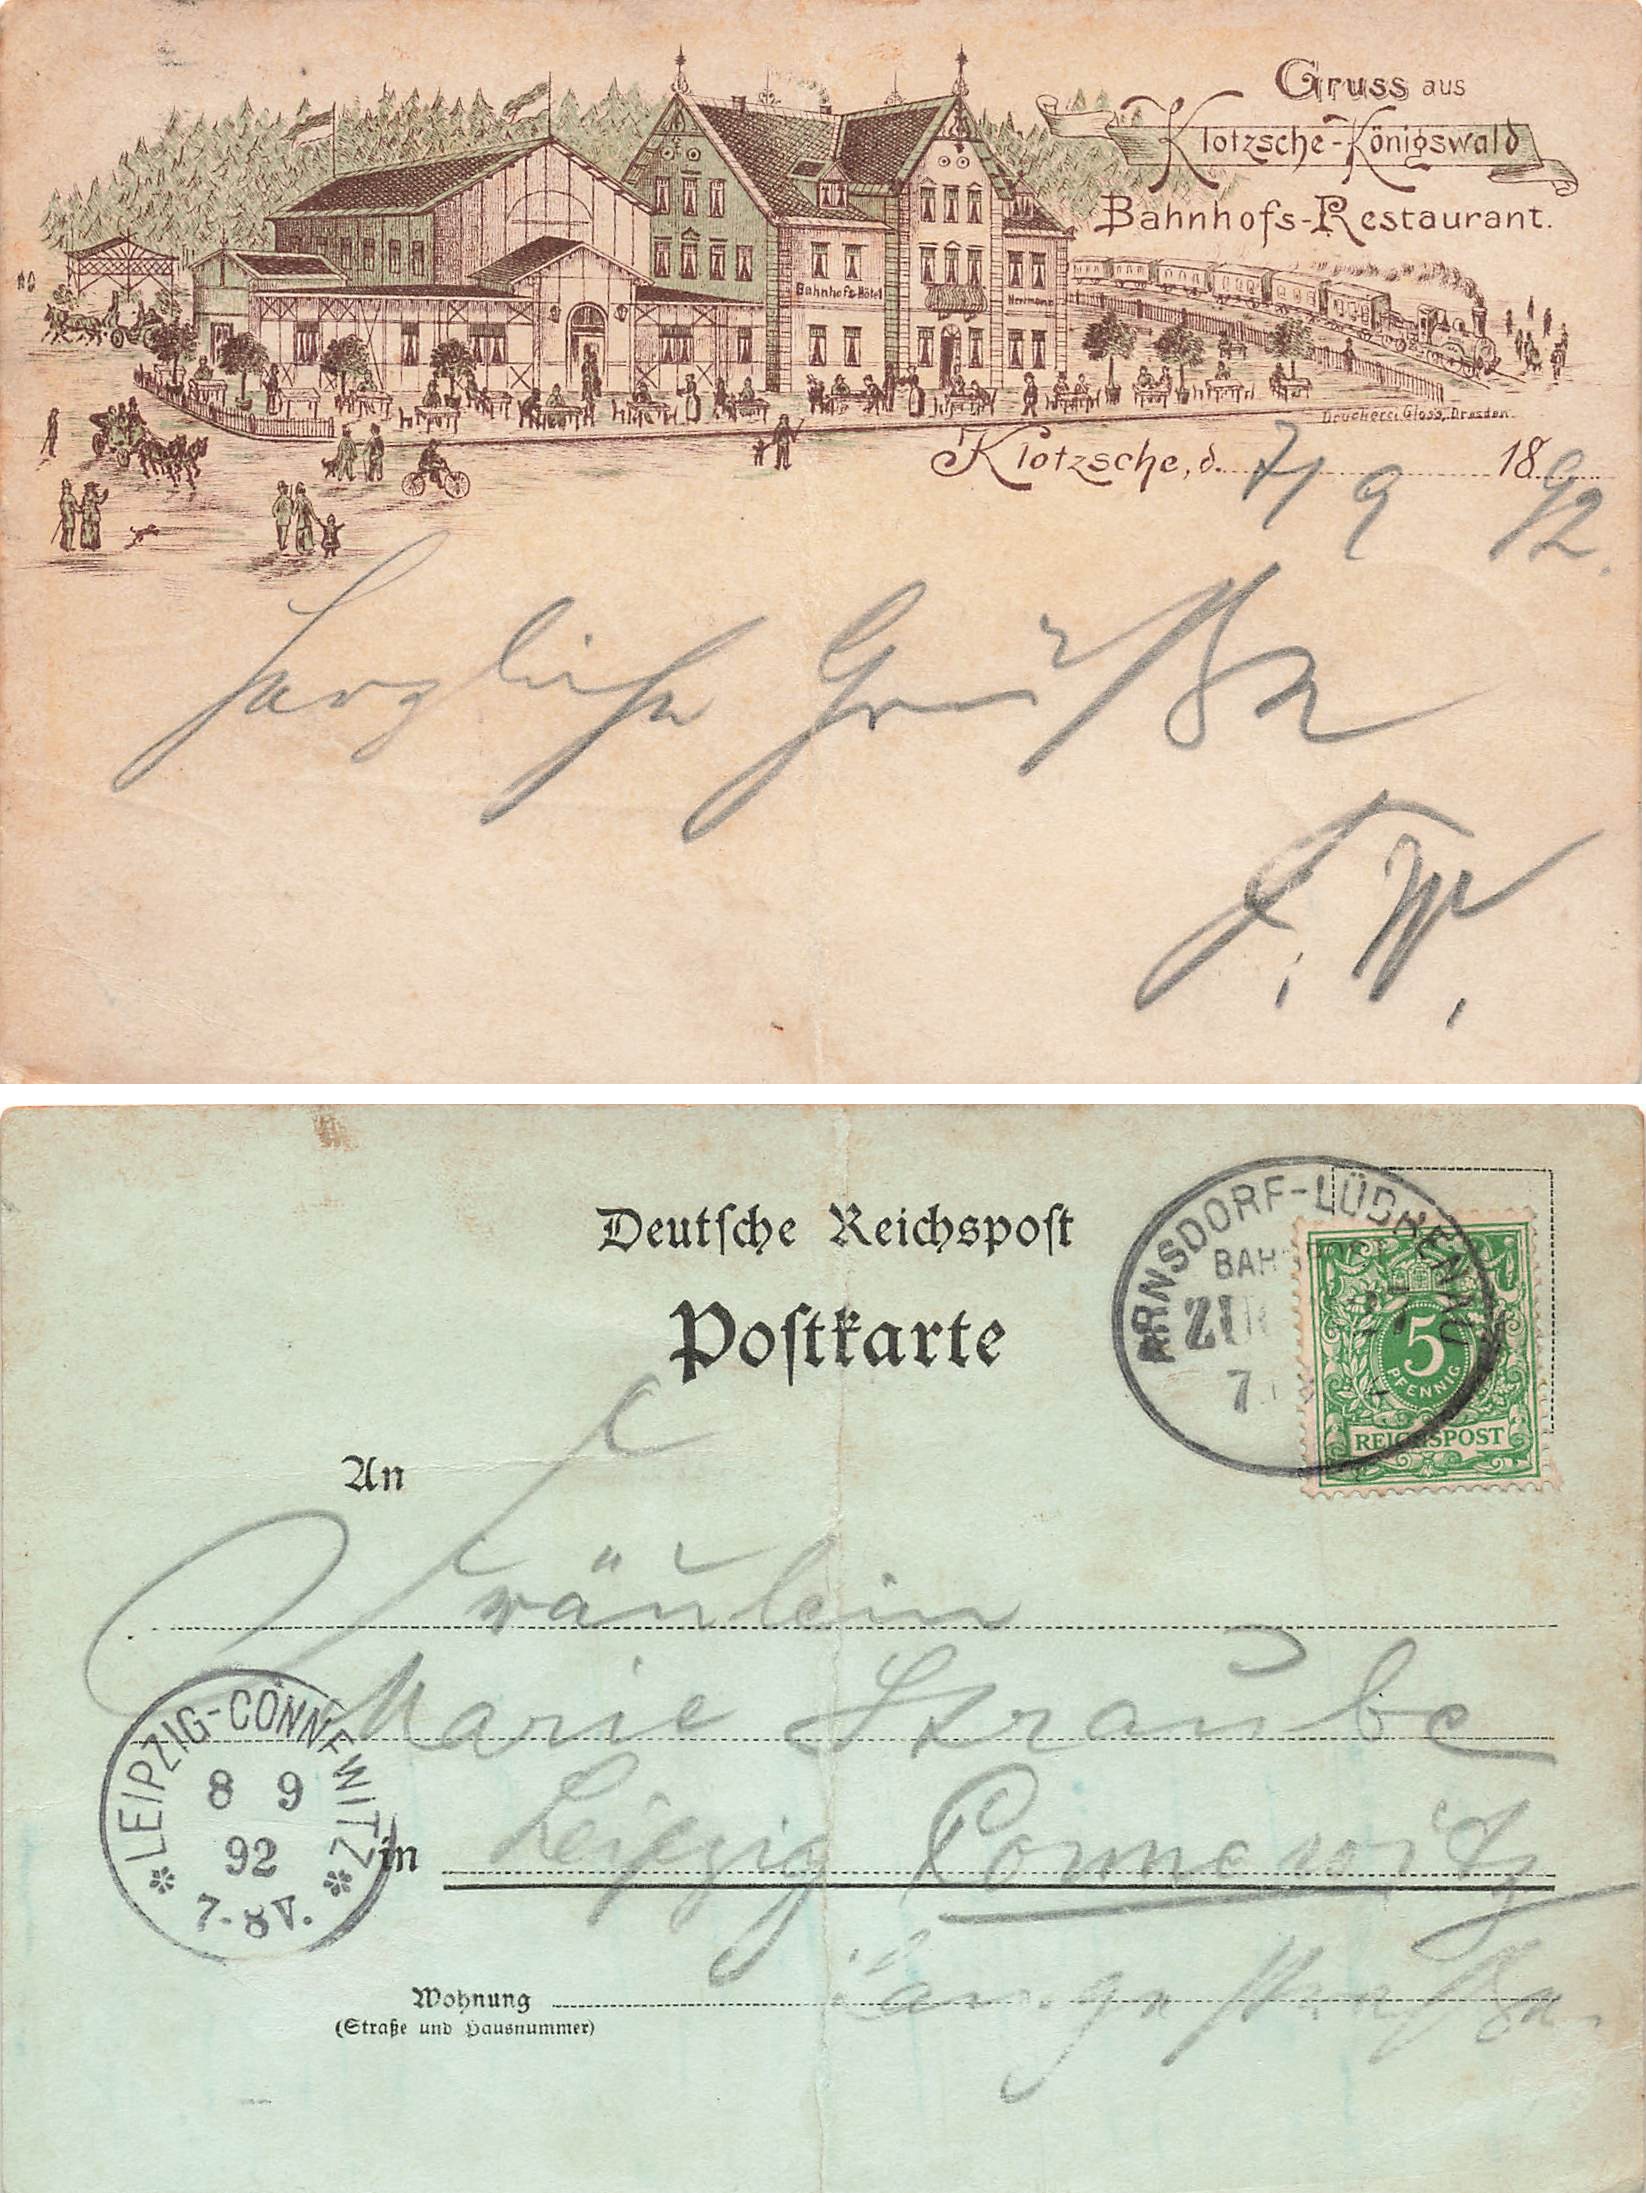 Gruss aus
Klotzsche-Königswald
Bahnhofs-Restaurant.
Bahnhofs-Hôtel
Hermann
Druckerei Gloss, Dresden.
Klotzsche, d. 7/9 1892.
Herzliche Grüße
F. W.
Deutsche Reichspost
Postkarte
ARNSDORF-LÜBBENAU
ZUG
7.
5
PFENNIG
REICHSPOST
An
Fräulein
Marie Straube
LEIPZIG-CONNEWITZ
8 9
92
7-8V.
in Leipzig Connewitz
Wohnung Lange Straße.
(Straße und Hausnummer)